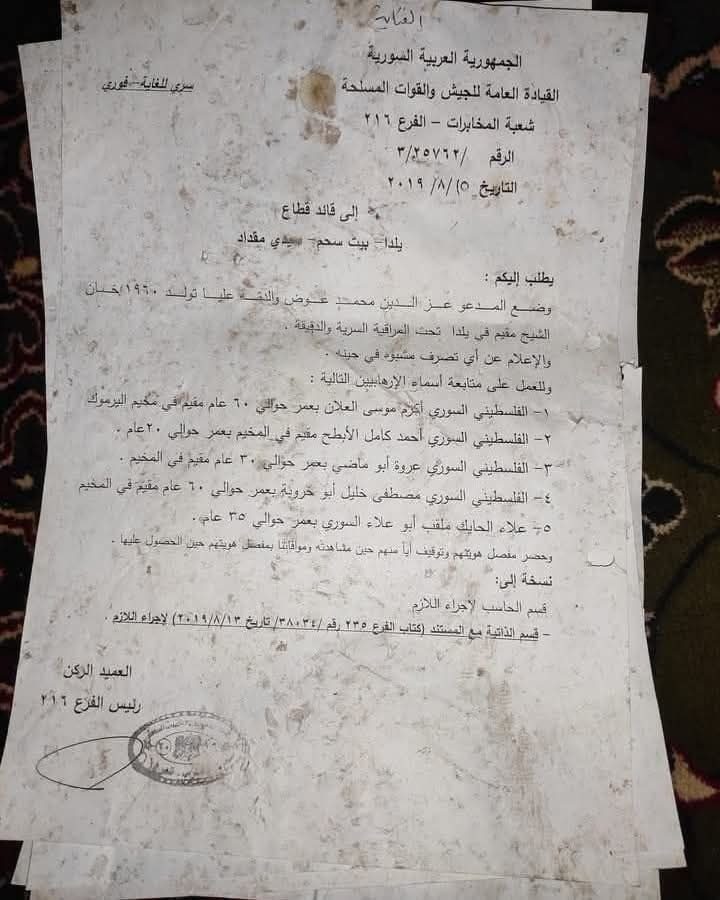 الجمهورية العربية السورية
القيادة العامة للجيش والقوات المسلحة
سري للغاية-فوري
شعبة المخابرات - الفرع ٢١٦
الرقم /٣/٢٥٧٦٢
التاريخ ١٥/ ٨/ ٢٠١٩
إلى قائد قطاع
يلدا- بيت سحم- سيدي مقداد
يطلب إليكم :
وضع المدعو عز الدين محمد عوض والدته عليا تولد ١٩٦٠/خان
الشيح مقيم في يلدا تحت المراقبة السرية والدقيقة .
والإعلام عن أي تصرف مشبوه في حينه .
وللعمل على متابعة أسماء الإرهابيين التالية :
١- الفلسطيني السوري أكرم موسى العلان بعمر حوالي ٦٠ عام مقيم في مخيم اليرموك
٢- الفلسطيني السوري أحمد كامل الأبطح مقيم في المخيم بعمر حوالي ٢٠عام .
٣- الفلسطيني السوري عروة أبو ماضي بعمر حوالي ٣٠ عام مقيم في المخيم .
٤- الفلسطيني السوري مصطفى خليل أبو خروبة بعمر حوالي ٦٠ عام مقيم في المخيم
٥- علاء الحايك ملقب أبو علاء السوري بعمر حوالي ٣٥ عام.
وحضر مفصل هويتهم وتوقيف أياً منهم حين مشاهدته وموافاتنا بمفصل هويتهم حين الحصول عليها .
نسخة إلى:
قسم الحاسب لإجراء اللازم
- قسم الذاتية مع المستند (كتاب الفرع ٢٣٥ رقم /٣٨٠٣٤/ تاريخ ٢٠١٩/٨/١٣) لإجراء اللازم .
العميد الركن
رئيس الفرع ٢١٦